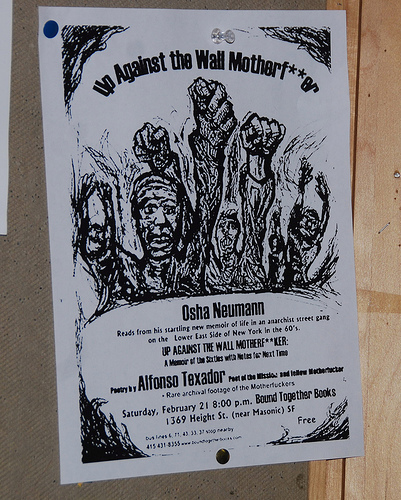 Up Against the Wall Motherf**er
Osha Neumann
Reads from his startling new memoir of life in an anarchist street gang
on the Lower East Side of New York in the 60's.
UP AGAINST THE WALL MOTHERF**KER:
A Memoir of the Sixties with Notes for Next Time
Poetry by Alfonso Texador Poet of the Mission and fellow Motherfucker
• Rare archival footage of the Motherfuckers
Saturday, February 21 8:00 p.m. Bound Together Books
1369 Height St. (near Masonic) SF
Free
bus lines 6, 71, 43, 33, 37 stop nearby
415 431-8355 www.boundtogetherbooks.com